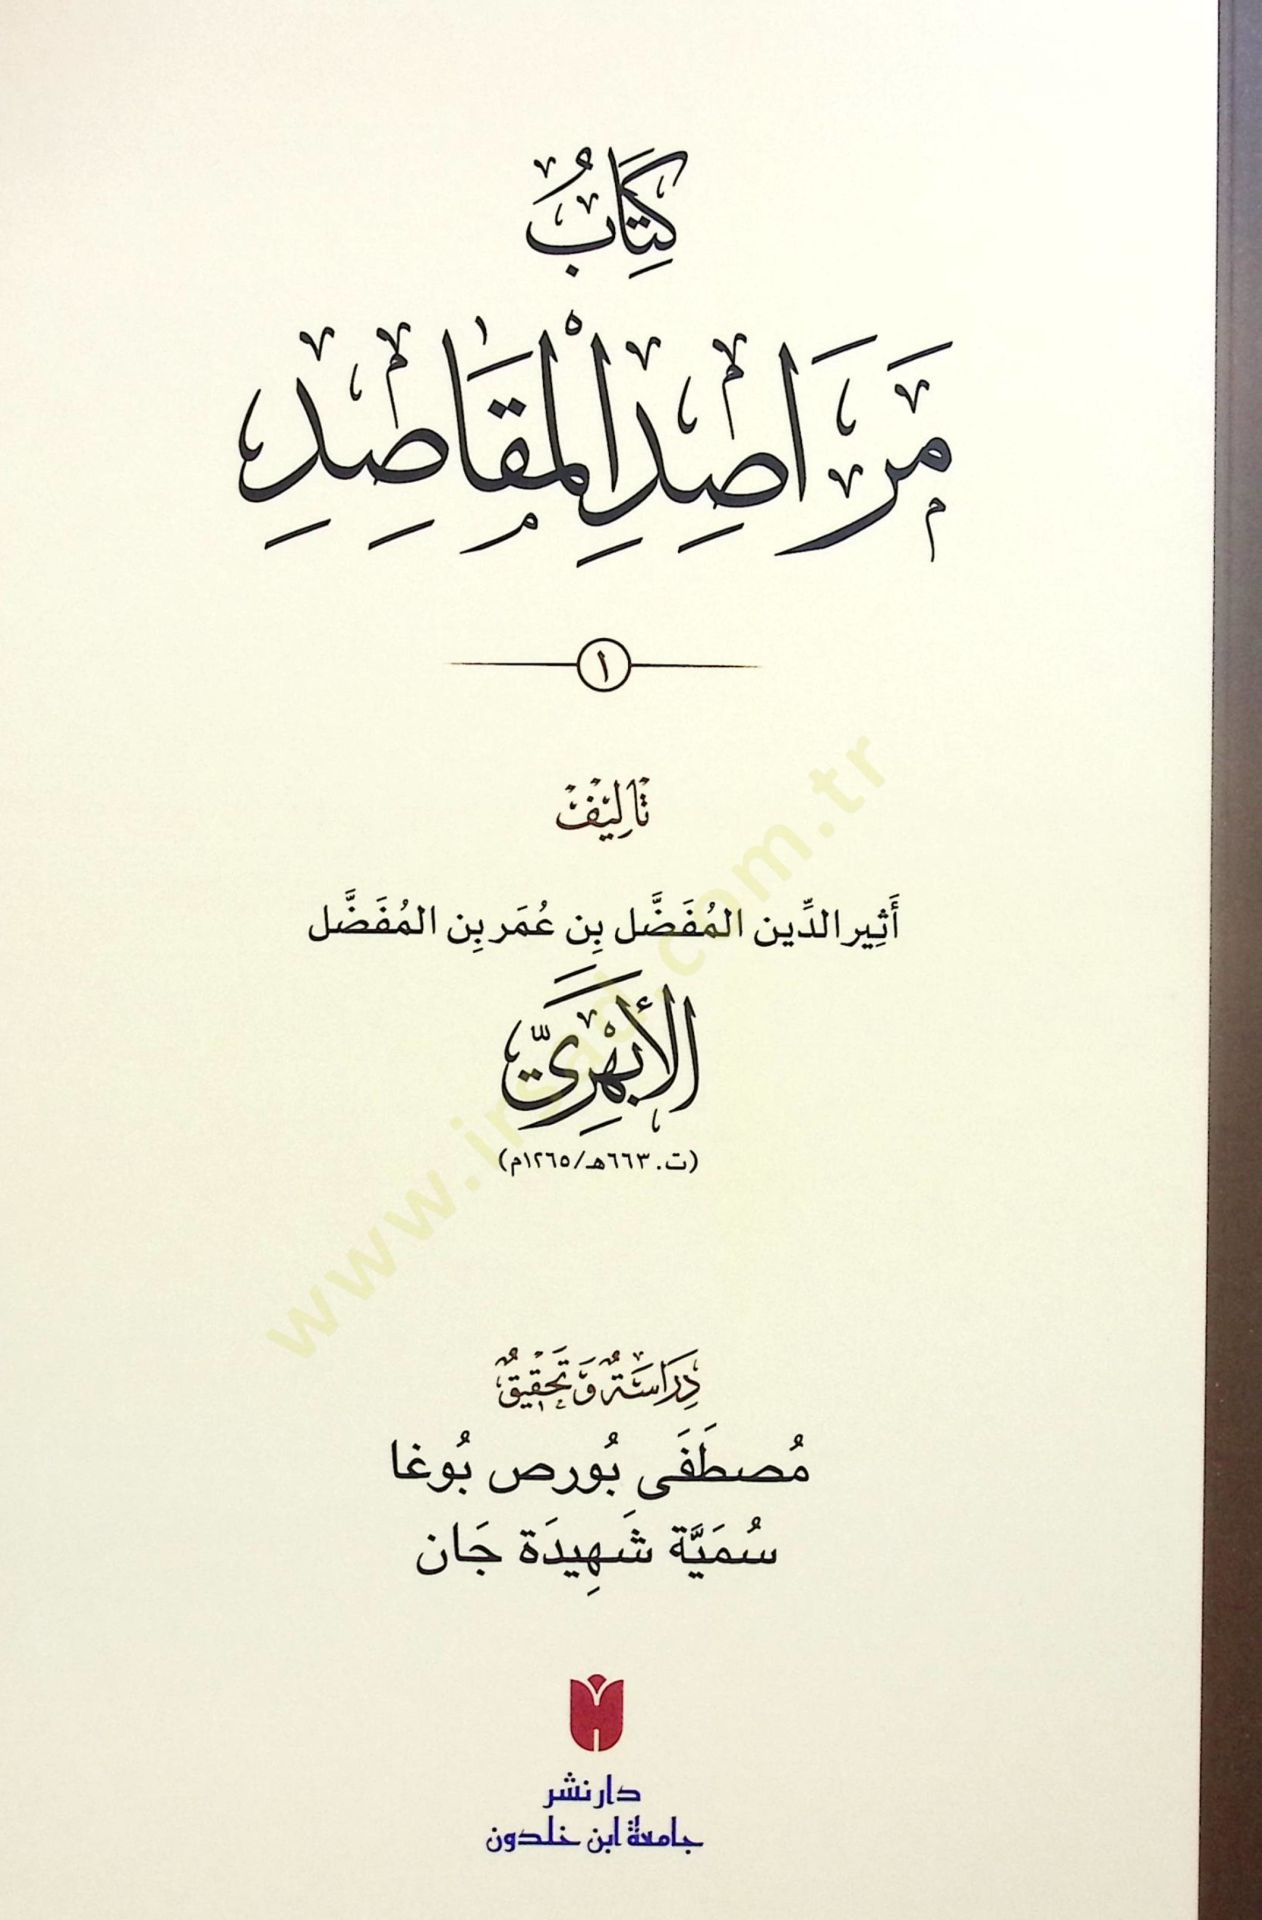 كِتَابُ
مَرَاصِدِ الْمَقَاصِدِ
١
تأليف
أَثِير الدِّين المُفَضَّل بِن عُمَر بِن المُفَضَّل
الأَبْهَرِيّ
(ت. ٦٦٣هـ/١٢٦٥م)
دِرَاسَةٌ وَتَحْقِيقٌ
مُصطَفَى بُورص بُوغا
سُمَيَّة شَهِيدَة جَان
دار نشر
جامعة ابن خلدون
www.irsad.com.tr